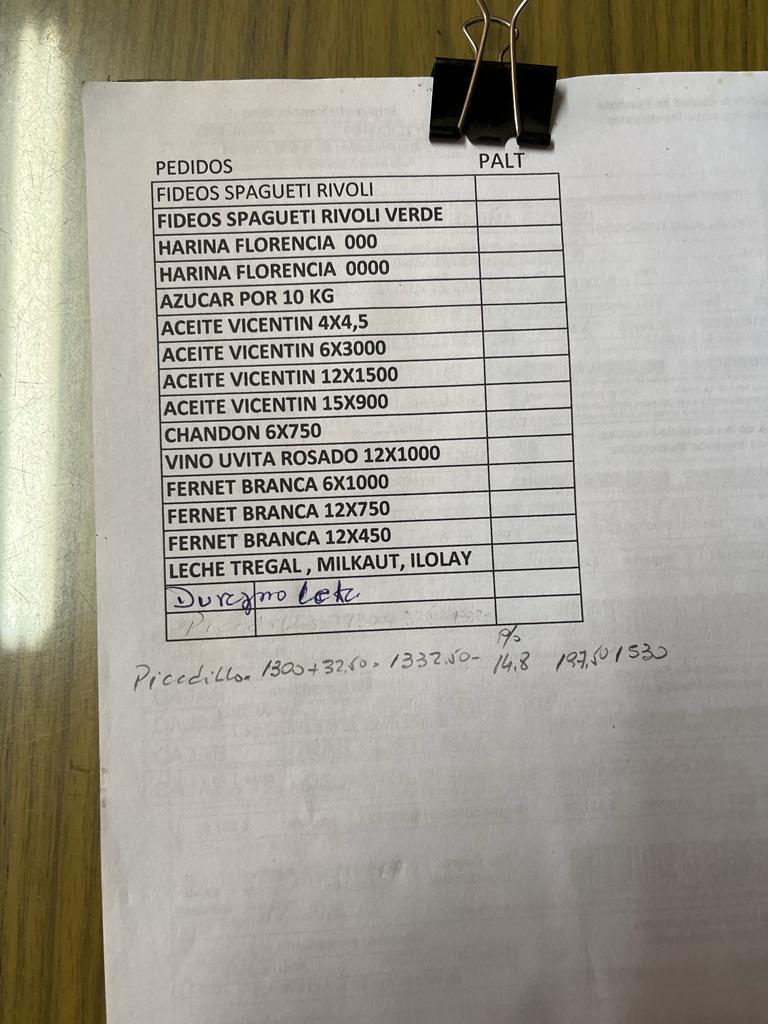 PEDIDOS PALT
FIDEOS SPAGUETI RIVOLI
FIDEOS SPAGUETI RIVOLI VERDE
HARINA FLORENCIA 000
HARINA FLORENCIA 0000
AZUCAR POR 10 KG
ACEITE VICENTIN 4X4,5
ACEITE VICENTIN 6X3000
ACEITE VICENTIN 12X1500
ACEITE VICENTIN 15X900
CHANDON 6X750
VINO UVITA ROSADO 12X1000
FERNET BRANCA 6X1000
FERNET BRANCA 12X750
FERNET BRANCA 12X450
LECHE TREGAL , MILKAUT, ILOLAY
Durazno Lata
Picadillo 1300+32.50= 1332.50- 14.8 197,50 1530